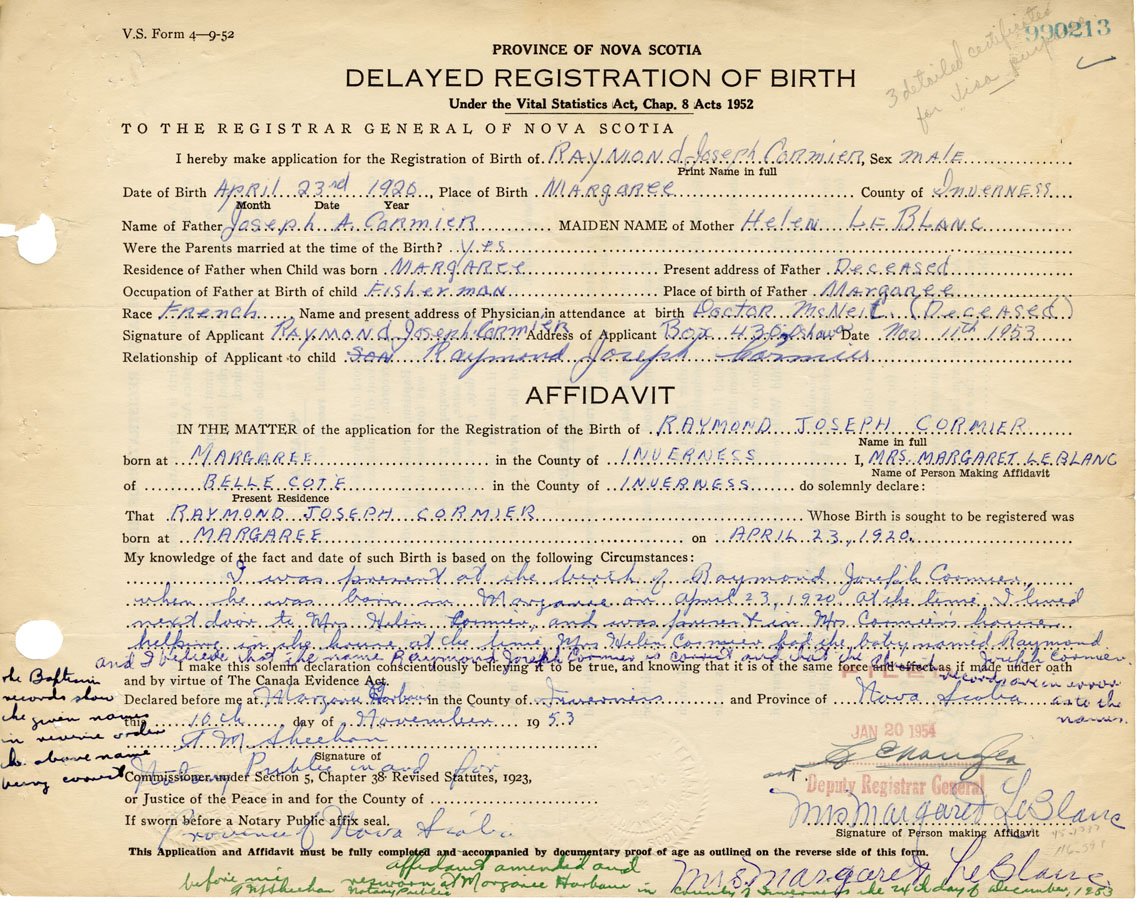 V.S. Form 4—9-52
990213
3 detailed certificates
for Visa purpose
PROVINCE OF NOVA SCOTIA
DELAYED REGISTRATION OF BIRTH
Under the Vital Statistics Act, Chap. 8 Acts 1952
TO THE REGISTRAR GENERAL OF NOVA SCOTIA
I hereby make application for the Registration of Birth of RAYMOND Joseph CORMIER, Sex MALE
Print Name in full
Date of Birth APRIL 23rd 1920, Place of Birth MARGAREE County of INVERNESS
Month Date Year
Name of Father Joseph A. CORMIER MAIDEN NAME of Mother Helen LEBLANC
Were the Parents married at the time of the Birth? yes
Residence of Father when Child was born MARGAREE Present address of Father Deceased
Occupation of Father at Birth of child Fisherman Place of birth of Father Margaree
Race French Name and present address of Physician in attendance at birth Doctor McNeil (Deceased)
Signature of Applicant Raymond Joseph Cormier Address of Applicant Box 436 Date Nov 11th 1953
Relationship of Applicant to child Son Raymond Joseph Cormier
AFFIDAVIT
IN THE MATTER of the application for the Registration of the Birth of RAYMOND JOSEPH CORMIER
Name in full
born at MARGAREE in the County of INVERNESS I, MRS. MARGARET LEBLANC
Name of Person Making Affidavit
of BELLE COTE in the County of INVERNESS do solemnly declare:
Present Residence
That RAYMOND JOSEPH CORMIER Whose Birth is sought to be registered was
born at MARGAREE on APRIL 23, 1920.
My knowledge of the fact and date of such Birth is based on the following Circumstances:
I was present at the birth of Raymond Joseph Cormier,
when he was born in Margaree on April 23, 1920 At the time I lived
next door to Mrs. Helen Cormier, and was present in Mrs. Cormier's house
helping in the house at the time Mrs Helen Cormier had the baby named Raymond
Joseph Cormier
and I believe that the name Raymond Joseph Cormier is correct and that the church
records are in error
as to the
names.
I make this solemn declaration conscientiously believing it to be true, and knowing that it is of the same force and effect as if made under oath
and by virtue of The Canada Evidence Act.
the Baptism
records show
the given names
in reverse order
the above name
being correct
FILED
Declared before me at Margaree Harbour in the County of Inverness and Province of Nova Scotia
this 10th day of November 1953
JAN 20 1954
A M Sheehan
Signature of
Notary Public in and for
Commissioner under Section 5, Chapter 38 Revised Statutes, 1923,
Deputy Registrar General
or Justice of the Peace in and for the County of
Mrs Margaret LeBlanc
If sworn before a Notary Public affix seal.
Province of Nova Scotia
Signature of Person making Affidavit
This Application and Affidavit must be fully completed and accompanied by documentary proof of age as outlined on the reverse side of this form.
Mrs. Margaret LeBlanc
affidavit amended and
before me resworn at Margaree Harbour in County of Inverness the 24th day of December, 1953
A M Sheehan Notary Public